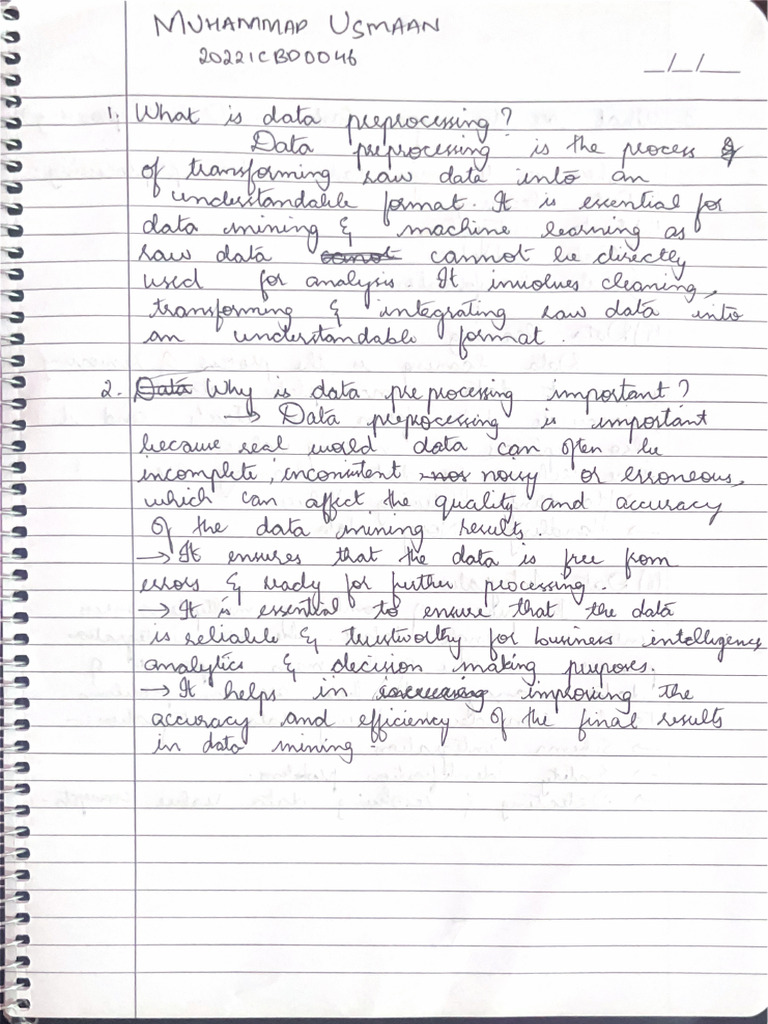 MUHAMMAD USMAAN
20221CBD0046
_/_/__
1. What is data preprocessing?
Data preprocessing is the process
of transforming raw data into an
understandable format. It is essential for
data mining & machine learning as
raw data cannot cannot be directly
used for analysis. It involves cleaning,
transforming & integrating raw data into
an understandable format.
2. Data Why is data preprocessing important?
→ Data preprocessing is important
because real world data can often be
incomplete, inconsistent nos noisy or erroneous,
which can affect the quality and accuracy
of the data mining results.
→ It ensures that the data is free from
errors & ready for further processing.
→ It is essential to ensure that the data
is reliable & trustworthy for business intelligence
analytics & decision making purposes.
→ It helps in increasing improving the
accuracy and efficiency of the final results
in data mining.